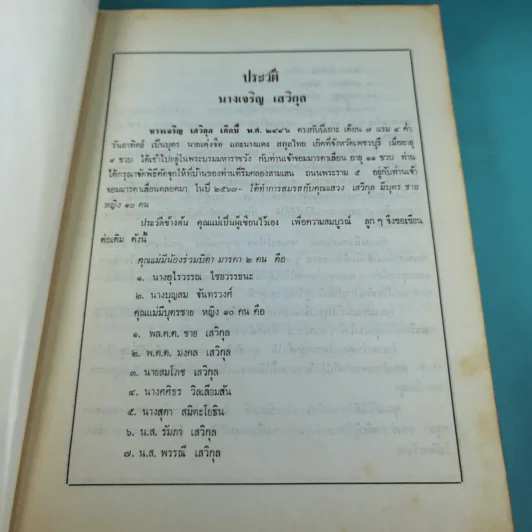 ประวัติ
นางเจริญ เสวิกุล
นางเจริญ เสวิกุล เกิดปี พ.ศ. ๒๔๔๖ ตรงกับปีเถาะ เดือน ๗ แรม ๔ ค่ำ
วันอาทิตย์ เป็นบุตร นายเต๋งชือ และนางแดง สกุลไทย เกิดที่จังหวัดเพชรบุรี เมื่ออายุ
๙ ขวบ ได้เข้าไปอยู่ในพระบรมมหาราชวัง กับท่านเจ้าจอมมารดาเลื่อน อายุ ๑๑ ขวบ ท่าน
ได้กรุณาจัดพิธีตัดจุกให้ที่บ้านของท่านที่ริมคลองสามเสน ถนนพระราม ๕ อยู่กับท่านเจ้า
จอมมารดาเลื่อนตลอดมา ในปี ๒๔๖๗ ได้ทำการสมรสกับคุณแสวง เสวิกุล มีบุตร ชาย
หญิง ๑๐ คน
ประวัติข้างต้น คุณแม่เป็นผู้เขียนไว้เอง เพื่อความสมบูรณ์ ลูก ๆ จึงขอเขียน
ต่อเติม ดังนี้
คุณแม่มีน้องร่วมบิดา มารดา ๒ คน คือ
๑. นางอุไรวรรณ ไชยวรรธนะ
๒. นางบุญสม จันทรวงศ์
คุณแม่มีบุตรชาย หญิง ๑๐ คน คือ
๑. พล.ต.ต. ชาย เสวิกุล
๒. พ.ต.ต. มงคล เสวิกุล
๓. นายสมโภช เสวิกุล
๔. นางศศิธร วิลเลียมสัน
๕. นางสุดา สมิตะโยธิน
๖. น.ส. รัมภา เสวิกุล
๗. น.ส. พรรณี เสวิกุล